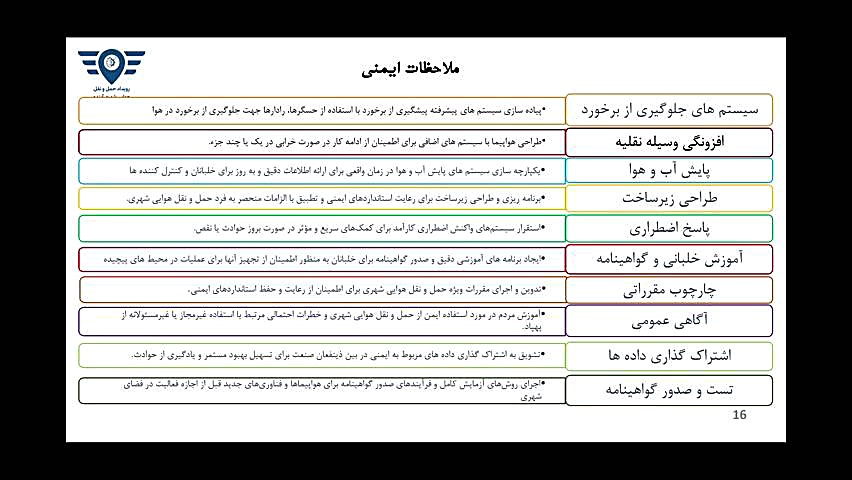 ملاحظات ایمنی
رویداد حمل و نقل
سیستم های جلوگیری از برخورد
•پیاده سازی سیستم های پیشرفته پیشگیری از برخورد با استفاده از حسگرها، رادارها جهت جلوگیری از برخورد در هوا
افزونگی وسیله نقلیه
•طراحی هواپیما با سیستم های اضافی برای اطمینان از ادامه کار در صورت خرابی در یک یا چند جزء.
پایش آب و هوا
•یکپارچه سازی سیستم های پایش آب و هوا در زمان واقعی برای ارائه اطلاعات دقیق و به روز برای خلبانان و کنترل کننده ها
طراحی زیرساخت
•برنامه ریزی و طراحی زیرساخت برای رعایت استانداردهای ایمنی و تطبیق با الزامات منحصر به فرد حمل و نقل هوایی شهری.
پاسخ اضطراری
•استقرار سیستم‌های واکنش اضطراری کارآمد برای کمک‌های سریع و مؤثر در صورت بروز حوادث یا نقص.
آموزش خلبانی و گواهینامه
•ایجاد برنامه های آموزشی دقیق و صدور گواهینامه برای خلبانان به منظور اطمینان از تجهیز آنها برای عملیات در محیط های پیچیده
چارچوب مقرراتی
•تدوین و اجرای مقررات ویژه حمل و نقل هوایی شهری برای اطمینان از رعایت و حفظ استانداردهای ایمنی.
آگاهی عمومی
•آموزش مردم در مورد استفاده ایمن از حمل و نقل هوایی شهری و خطرات احتمالی مرتبط با استفاده غیرمجاز یا غیرمسئولانه از
پهپاد.
اشتراک گذاری داده ها
•تشویق به اشتراک گذاری داده های مربوط به ایمنی در بین ذینفعان صنعت برای تسهیل بهبود مستمر و یادگیری از حوادث.
تست و صدور گواهینامه
•اجرای روش‌های آزمایش کامل و فرآیندهای صدور گواهینامه برای هواپیماها و فناوری‌های جدید قبل از اجازه فعالیت در فضای
شهری
16